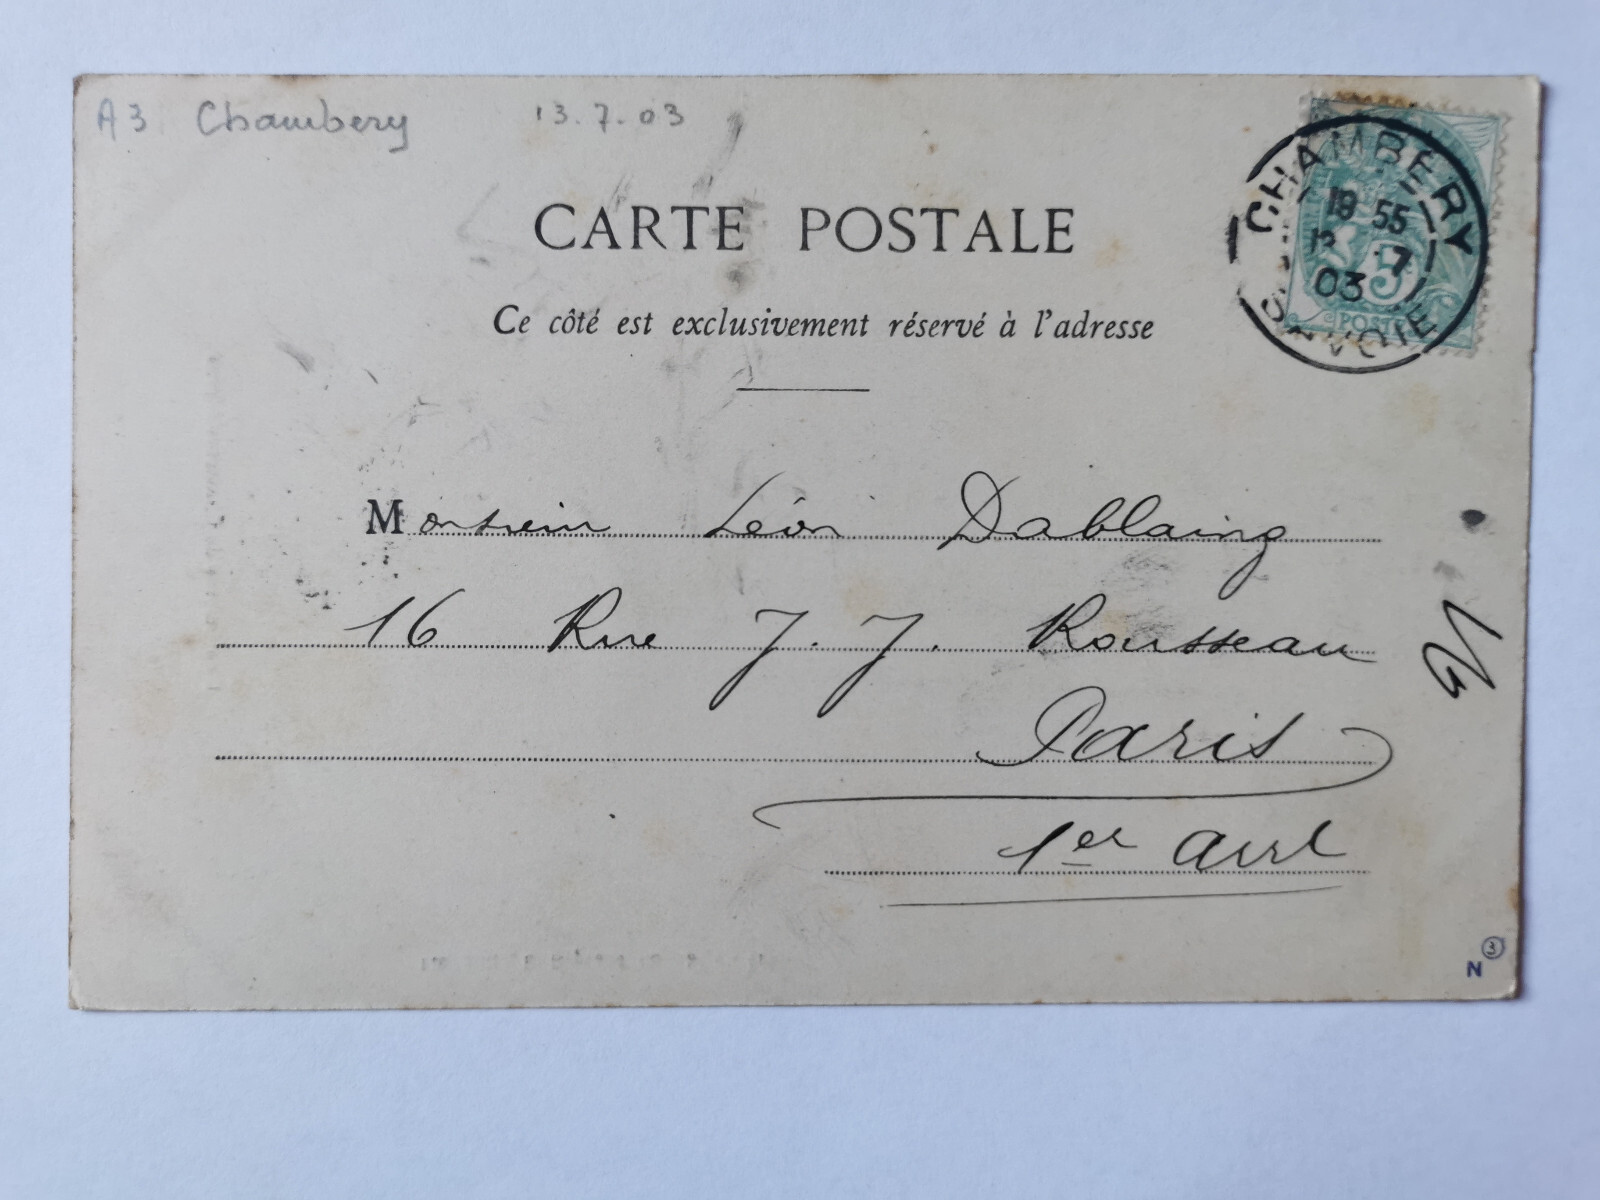 A3 Chambery 13.7.03
CHAMBÉRY
18 55
7
03
SAVOIE
5
POSTES
CARTE POSTALE
Ce côté est exclusivement réservé à l'adresse
Monsieur Léon Dablaing
16 Rue J. J. Rousseau
Paris
1er Arrt
3
N